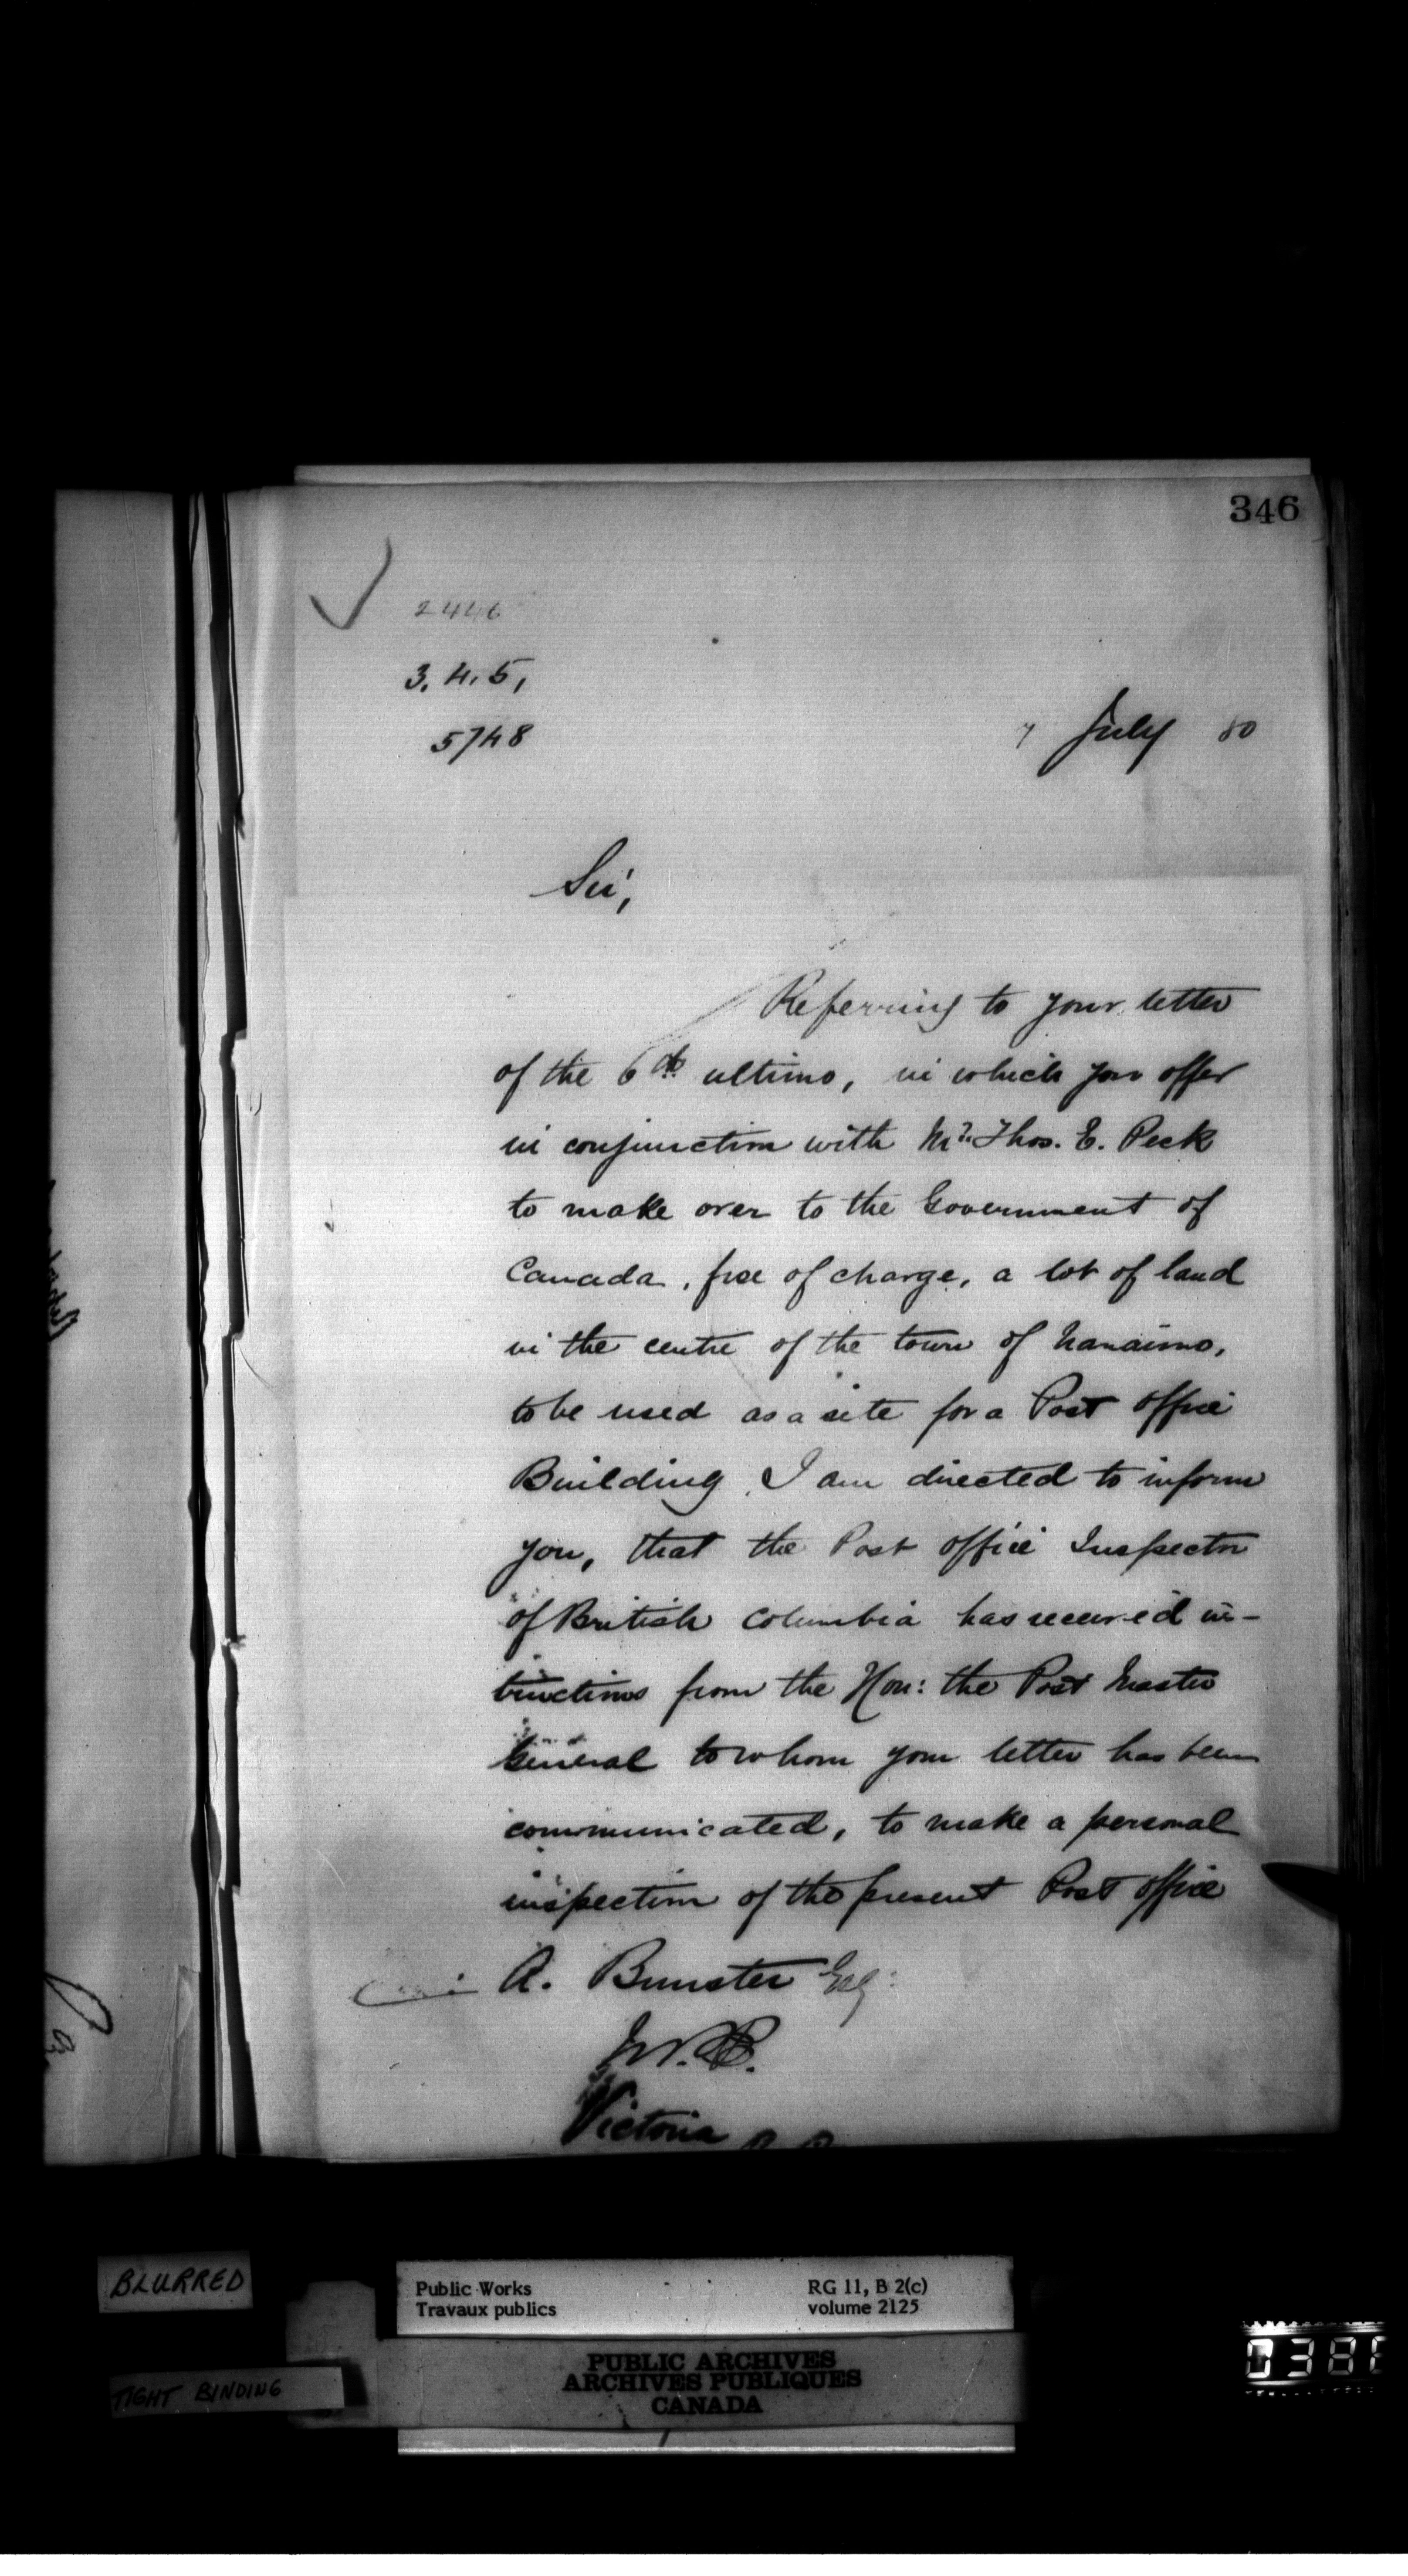 346
2446
3. 4. 5,
5748
7 July 80
Sir,
Referring to your letter
of the 6th ultimo, in which you offer
in conjunction with Mr. Thos. E. Peck
to make over to the Government of
Canada, free of charge, a lot of land
in the centre of the town of Nanaimo,
to be used as a site for a Post Office
Building, I am directed to inform
you, that the Post Office Inspector
of British Columbia has received in-
tructions from the Hon: the Post Master
General to whom your letter has been
communicated, to make a personal
inspection of the present Post Office
A. Bunster Esq:
M.P.
Victoria
BLURRED
TIGHT BINDING
Public Works
Travaux publics
RG 11, B 2(c)
volume 2125
PUBLIC ARCHIVES
ARCHIVES PUBLIQUES
CANADA